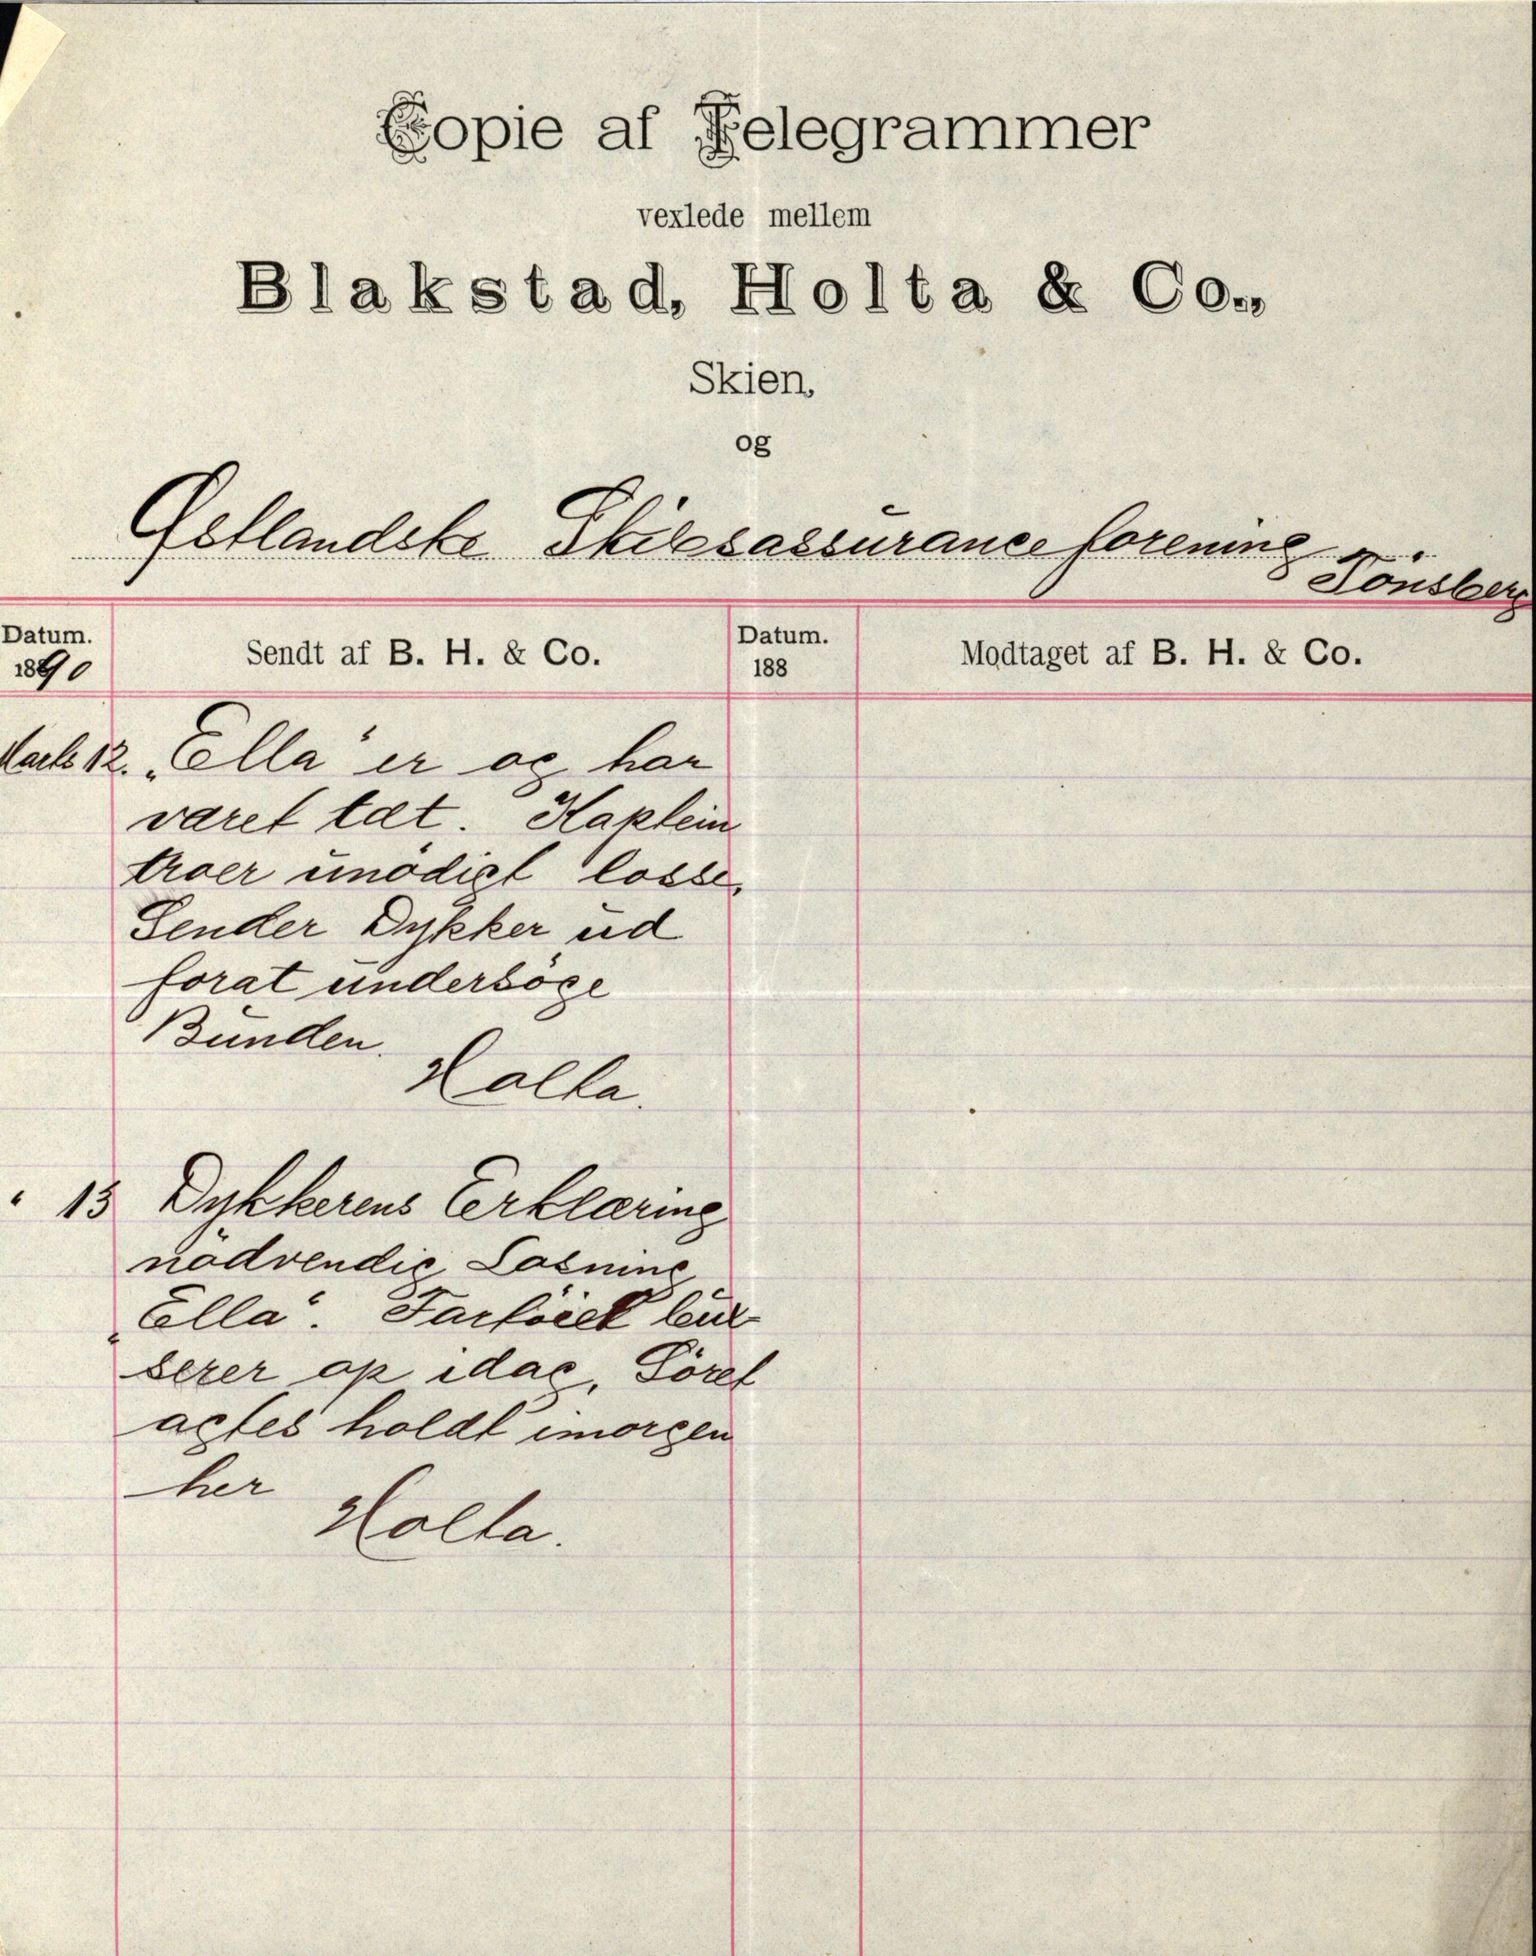 Copie af Telegrammer
vexlede mellem
Blakstad, Holta & Co.,
Skien,
og
Østlandske Skibsassuranceforening
Tönsberg
Datum.
1890
Sendt af B. H. & Co.
Datum.
188
Modtaget af B. H. & Co.
Marts 12. „Ella" er og har
været tæt. Kaptein
troer unödigt losse.
Sender Dykker ud
forat undersöge
Bunden.
Holta.
" 13 Dykkerens Erklæring
nödvendig Losning
„Ella". Fartöiet bux-
serer op idag. Söret
agtes holdt imorgen
her
Holta.